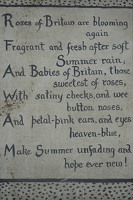 Roses of Britain are blooming
again
Fragrant and fresh after soft
Summer rain,
And Babies of Britain, those
sweetest of roses,
With satiny cheeks, and wee
button noses,
And petal-pink ears, and eyes
heaven-blue,
Make Summer unfading and
hope ever new!